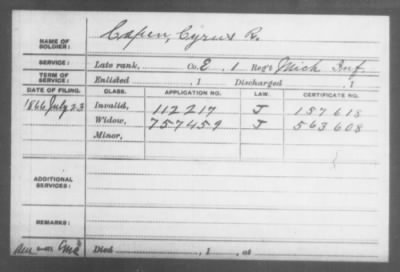 NAME OF SOLDIER: Capen, Cyrus R.
SERVICE: Late rank, Co. E, 1 Reg't Mich Inf.
TERM OF SERVICE: Enlisted , 1 Discharged , 1
DATE OF FILING. CLASS. APPLICATION NO. LAW. CERTIFICATE NO.
1866 July 23 Invalid, 112217 J 157618
Widow, 757459 J 563608
Minor,
ADDITIONAL SERVICES:
REMARKS:
Died , 1 , at